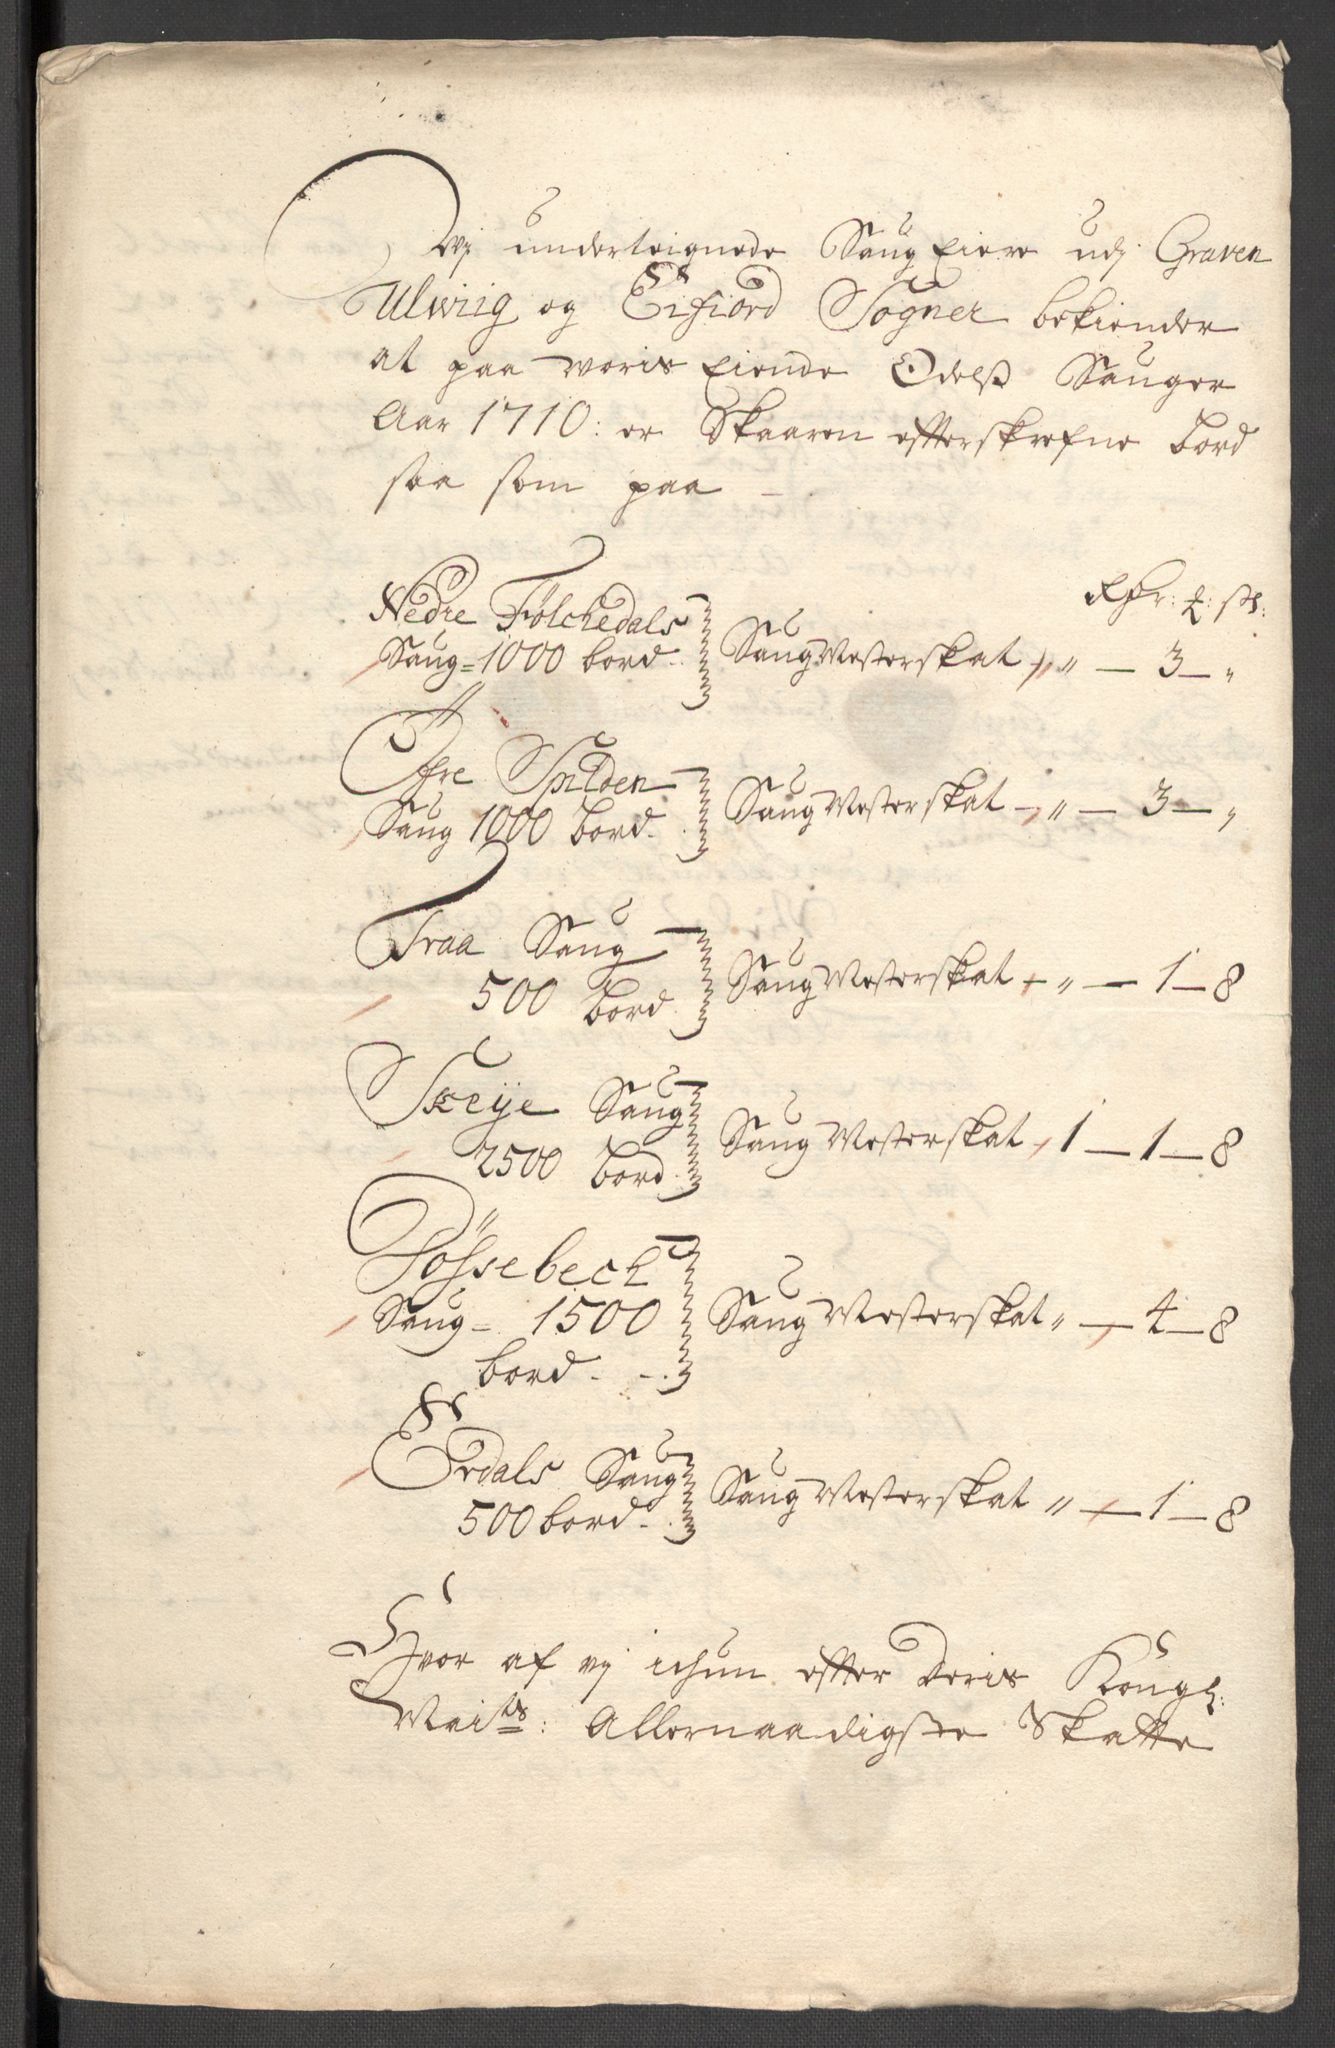 Wj underteignede Saug Eiere udj Graven
Ulwiig og Eifiord Sogner bekiender
at paa woris Eiende Odelss Sauger
Aar 1710: er Skaaren effterskrefne bord
saa som paa
Rdr: ꝶ: sk:
Nedre Fölchedals
Saug = 1000 bord. Saug Mesterskat " — 3 — "
Öfre Spilden
Saug 1000 bord. Saug Mesterskat — " — 3 — "
Traa Saug
500 bord Saug Mesterskat — " — 1 — 8
Skeije Saug
2500 bord Saug Mesterskat 1 — 1 — 8
Pössebech
Saug = 1500 Saug Mesterskat " — 4 — 8
bord.
Erdals Saug
500 bord. Saug Mesterskat " — 1 — 8
Hvor af vj ichun effter Deris Kongl:
Maits: Allernaadigste Skatte